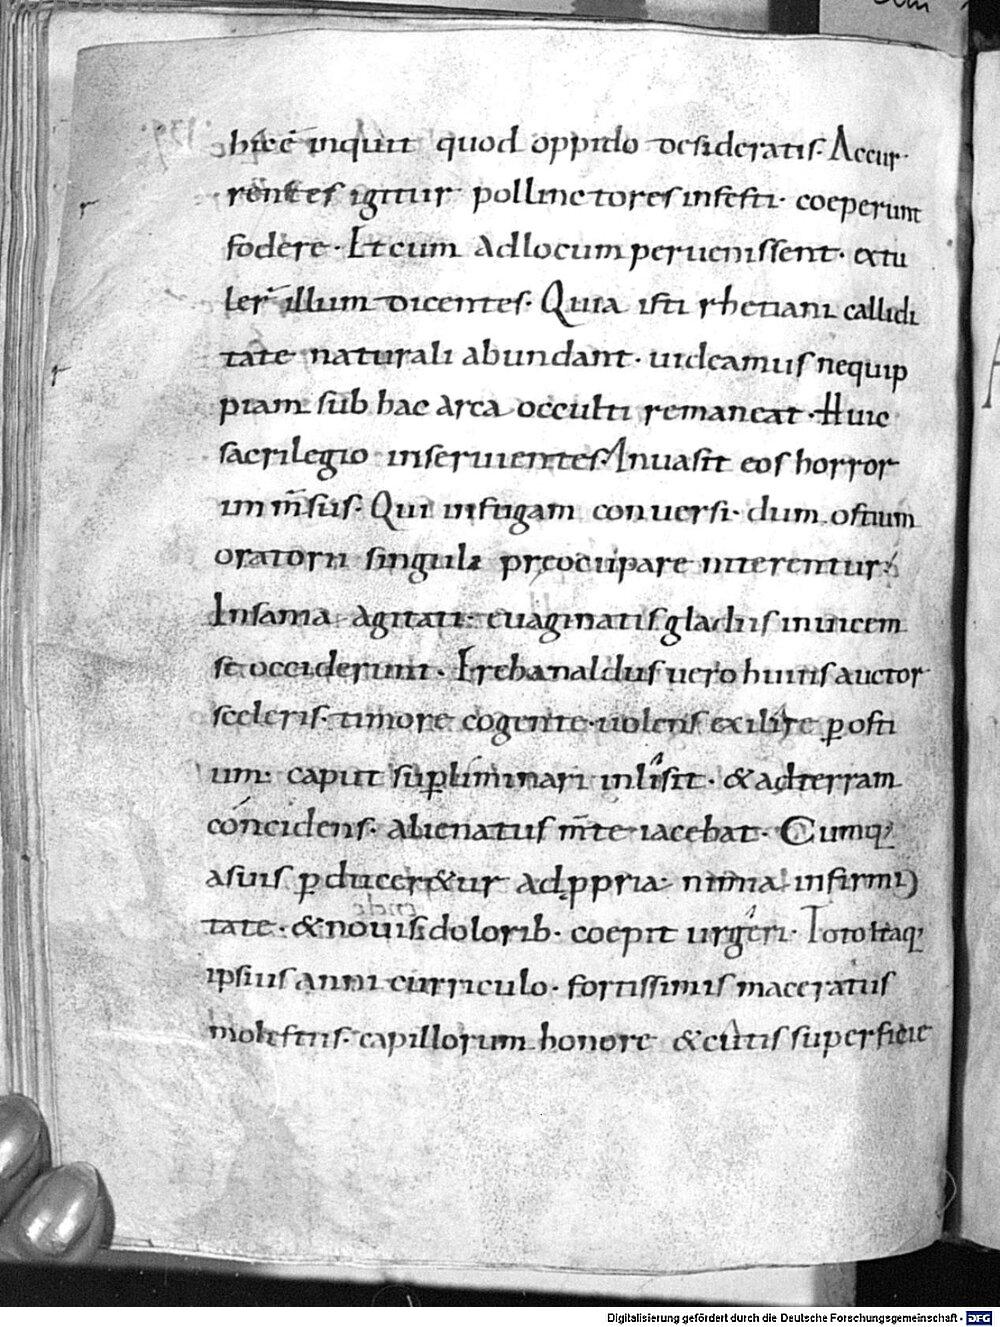 hic ē inquit quod oppido desideratis. Accur
rentes igitur pollinctores infesti. coeperunt
fodere. Et cum ad locum peruenissent. extu
ler̄ illum dicentes. Quia isti rhetiani callidi
tate naturali abundant. uideamus nequip
piam sub hac arca occulti remaneat. Huic
sacrilegio inseruientes. Inuasit eos horror
inm̄sus. Qui in fugam conuersi. dum ostium
oratorii singuli pręoccupare niterentur.
Insania agitati. euaginatis gladiis inuicem
se occiderunt. Erchanaldus uero huius auctor
sceleris. timore cogente. uolens exilire ꝑ osti
um. caput suꝑliminari inlisit. & ad terram
concidens. alienatus m̄te iacebat. Cumq;
a suis ꝑducer&ur ad ꝓpria. nimia infirmi
tate. & nouis dolorib. coepit urgeri. Toto itaq;
ipsius anni curriculo. fortissimis maceratus
molestiis. capillorum honore & cutis superficie
Digitalisierung gefördert durch die Deutsche Forschungsgemeinschaft - DFG